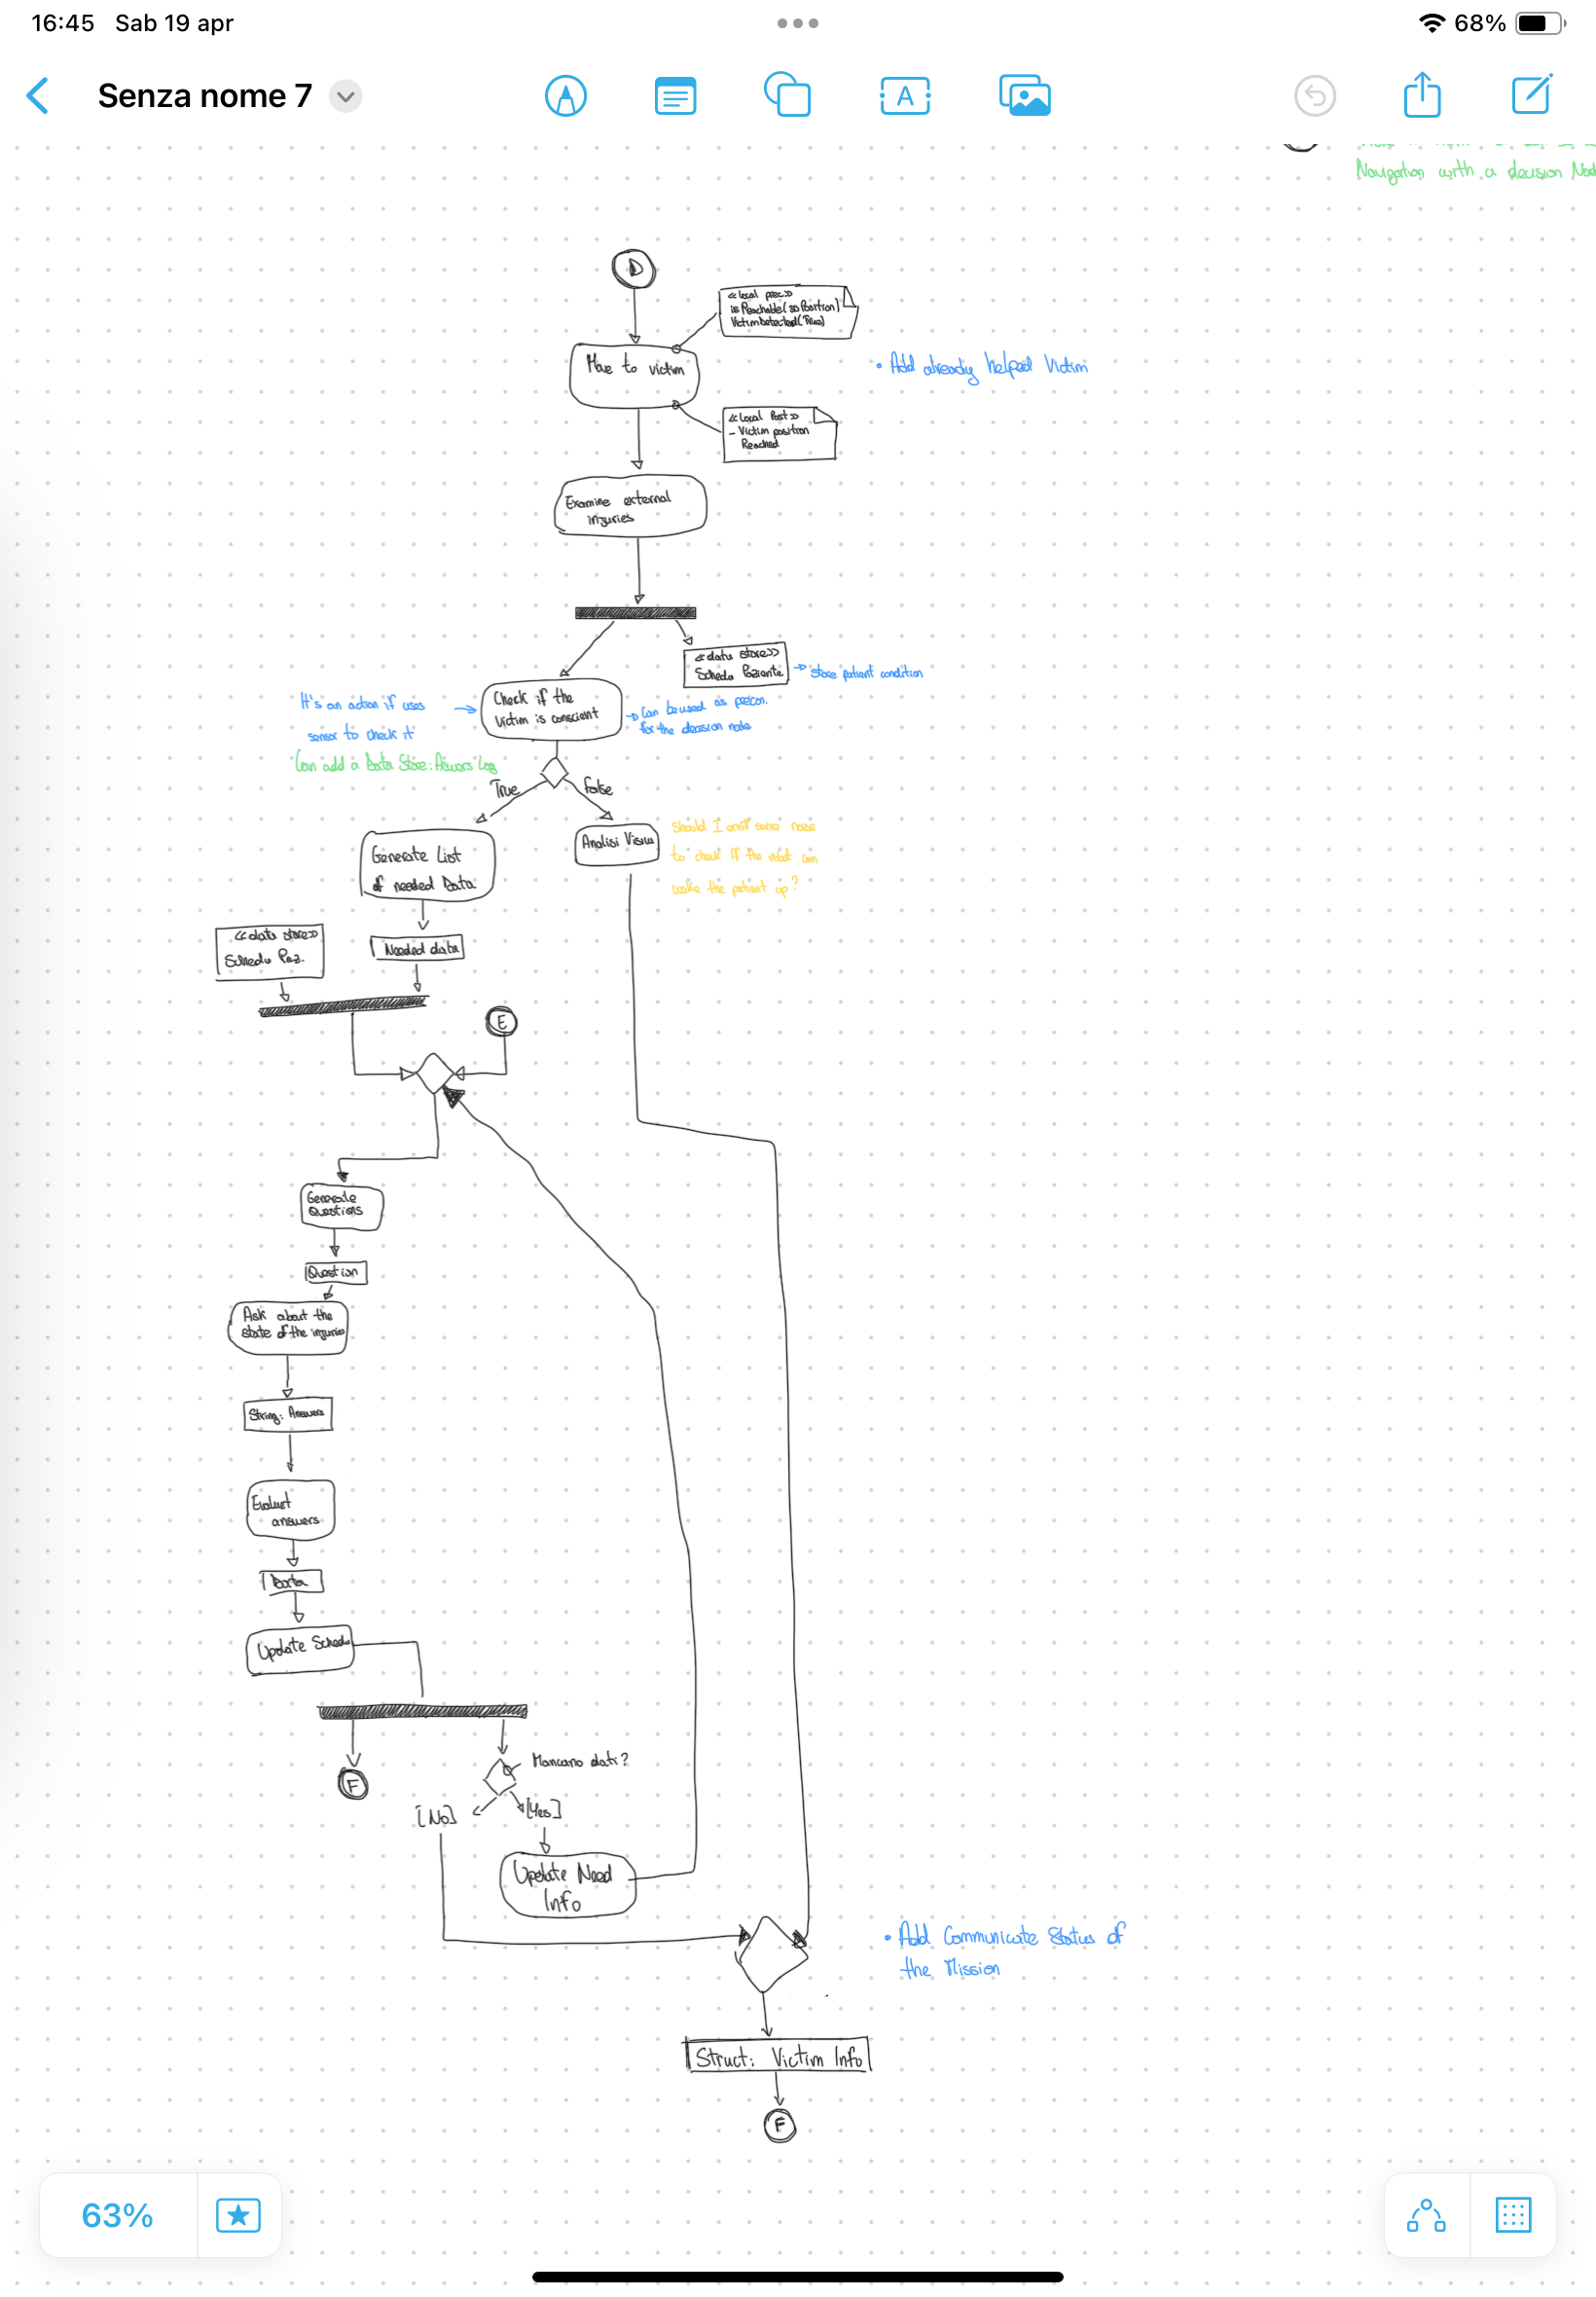 16:45 Sab 19 apr
68%
Senza nome 7
Navigation with a decision
D
«local prec»
is Reachable(3D Position)
VictimDetected(True)
Move to victim
• Add already helped Victim
«Local Post»
- Victim position
Reached
Examine external
injuries
«data store»
Scheda Paziente
Store patient condition
It's an action if uses
sensor to check it
Check if the
victim is conscient
Can be used as precon.
for the decision node
Can add a Data Store: Aswers Log
True
false
Generate List
of needed Data
Analisi Visiva
Should I emit some noise
to check If the robot can
wake the patient up?
«data store»
Scheda Paz.
Needed data
E
Generate
Questions
Question
Ask about the
state of the injuries
String: Answers
Evaluet
answers
Data
Update Scheda
F
Mancano dati?
[No]
[Yes]
Update Need
Info
• Add Communicate Status of
the Mission
Struct: Victim Info
F
63%